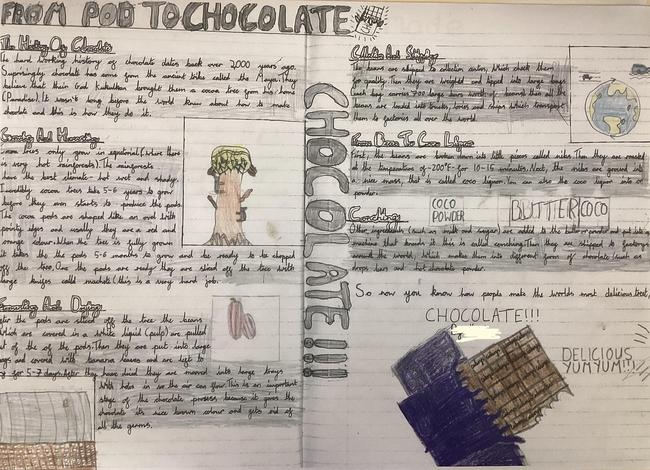 FROM POD TO CHOCOLATE
The History Of Chocolate
The hard working history of chocolate dates back over 2000 years ago.
Surprisingly chocolate has come from the ancient tribe called the Maya. They
believe that their God Kukulkan brought them a cocoa tree from his home
(Paradise). It wasn't long before the world knew about how to make
chocolate and this is how they do it.
Growing And Harvesting
trees only grow in equatorial (where there
is very hot rainforests). The rainforests
have the best climate - hot wet and shady.
Incredibly cocoa trees take 5-6 years to grow
before they even starts to produce the pods.
The cocoa pods are shaped like an oval with
pointy edges and usually they are a red and
orange colour. When the tree is fully grown
it takes the pods 5-6 months to grow and be ready to be chopped
off the tree. Once the pods are ready they are sliced off the tree with
large knifes called machete (this is a very hard job.
And Drying
the pods are sliced off the tree the beans
which are covered in a white liquid (pulp) are pulled
out of the pods. Then they are put into large
and covered with banana leaves and are left to
for 5-7 days. After they have dried they are moved into large trays
with holes in so the air can flow. This is an important
stage of the chocolate process because it gives the
chocolate its nice brown colour and gets rid of
all the germs.
CHOCOLATE!!!
Collection And Shipping
beans are shipped to collection centres, which check them
for quality. Then they are weighed and tipped into large bags
beans are loaded into trucks, lories and ships which transport
them to factories all over the world.
From Bean To Coco Liquor
First, the beans are broken down into little pieces called nibs. Then they are roasted
at the temperature of 200°F for 10-15 minutes. Next, the nibs are ground into
a nice mass, that is called coco liquor. You can also the coco liquor into
powder.
COCO
POWDER
BUTTER COCO
Conching
Other ingredients (such as milk and sugar) are added to the butter or powder and put into a
machine that kneads it this is called conching. Then they are shipped to factorys
around the world, which make them into different forms of chocolate (such as
drops bars and hot chocolate powder.
So now you know how people make the worlds most delicious treat,
CHOCOLATE!!!
DELICIOUS
YUM YUM!!!